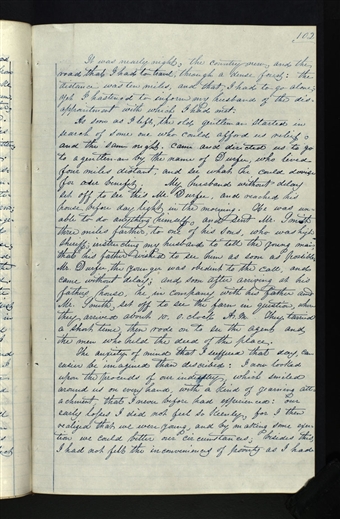 102
It was nearly night, the country new, and the
road that I had to travel, through a dense forest: the
distance was ten miles, and that, I had to go alone,
yet I hastened to inform my husband of the dis-
appointment with which I had met.
As soon as I left, the old gentleman started in
search of some one who could afford us relief,
and the same night, came and directed us to go
to a gentleman by the name of Durfee, who lived
four miles distant, and see what he could devise
for our benefit. My husband without delay
set off to see this Mr Durfee, and reached his
house before day light in the morning. He was un-
able to do anything himself, and sent Mr. Smith
three miles further, to one of his sons, who was high
sheriff; instructing my husband to tell the young man,
that his father wished to see him as soon as possible
Mr Durfee, the younger was obedient to the call, and
came without delay; and soon after arriving at his
fathers house he in company with his father and
Mr. Smith, set off to see the farm in question, where
they arrived about 10. o,clock A.M. They tarried
a short time, then rode on to see the agent and
the men who held the deed of the place.
The anxiety of mind that I suffered that day, can
easier be imagined than described: I now looked
upon the proceeds of our industry, which smiled
around us on every hand, with a kind of yearning att-
achment that I never before had experienced: our
early losses I did not feel so keenly, for I then
realized that we were young, and by making some exer-
tion we could better our circumstances; besides this
I had not felt the inconveniencing of poverty as I had